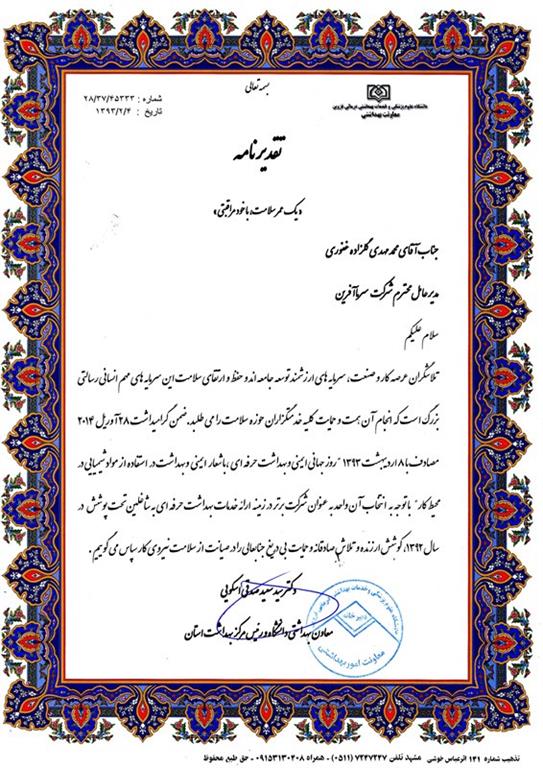 بسمه تعالی
دانشگاه علوم پزشکی و خدمات بهداشتی درمانی قزوین
معاونت بهداشتی
شماره : ۲۸/۳۷/۴۵۳۳۳
تاریخ : ۱۳۹۳/۲/۴
تقدیرنامه
«یک عمر سلامت، با خودمراقبتی»
جناب آقای محمد مهدی گلزاده غفوری
مدیرعامل محترم شرکت سرماآفرین
سلام علیکم
تلاشگران عرصه کار و صنعت، سرمایه های ارزشمند توسعه جامعه اند و حفظ و ارتقای سلامت این سرمایه های مهم انسانی رسالتی
بزرگ است که انجام آن همت و حمایت کلیه خدمتگزاران حوزه سلامت را می طلبد. ضمن گرامیداشت ۲۸ آوریل ۲۰۱۴
مصادف با ۸ اردیبهشت ۱۳۹۳ "روز جهانی ایمنی و بهداشت حرفه ای، با شعار ایمنی و بهداشت در استفاده از مواد شیمیایی در
محیط کار" با توجه به انتخاب آن واحد به عنوان شرکت برتر در زمینه ارائه خدمات بهداشت حرفه ای به شاغلین تحت پوشش در
سال ۱۳۹۲، کوشش ارزنده و تلاش صادقانه و حمایت بی دریغ جنابعالی را در صیانت از سلامت نیروی کار سپاس می گوییم.
دکتر سید سعید صدقی اسکویی
معاون بهداشتی دانشگاه و رئیس مرکز بهداشت استان
دبیرخانه
معاونت امور بهداشتی
تذهیب شماره ۱۳۱ اثر عباس خوشی مشهد تلفن ۷۲۴۷۲۴۷ (۰۵۱۱) - همراه ۰۹۱۵۳۱۳۰۴۰۸ - حق طبع محفوظ